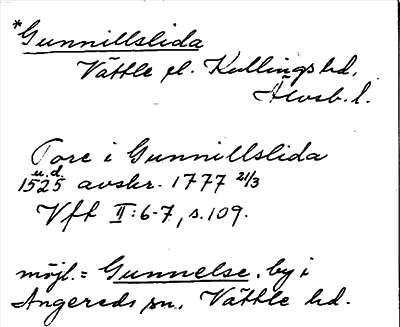 *Gunnillslida
Vättle el. Kullings hd.
Älvsb. l.
Tore i Gunnillslida
u.d.
1525 avskr. 1777 21/3
Vft II:6-7, s. 109.
möjl. = Gunnelse, by i
Angereds sn, Vättle hd.